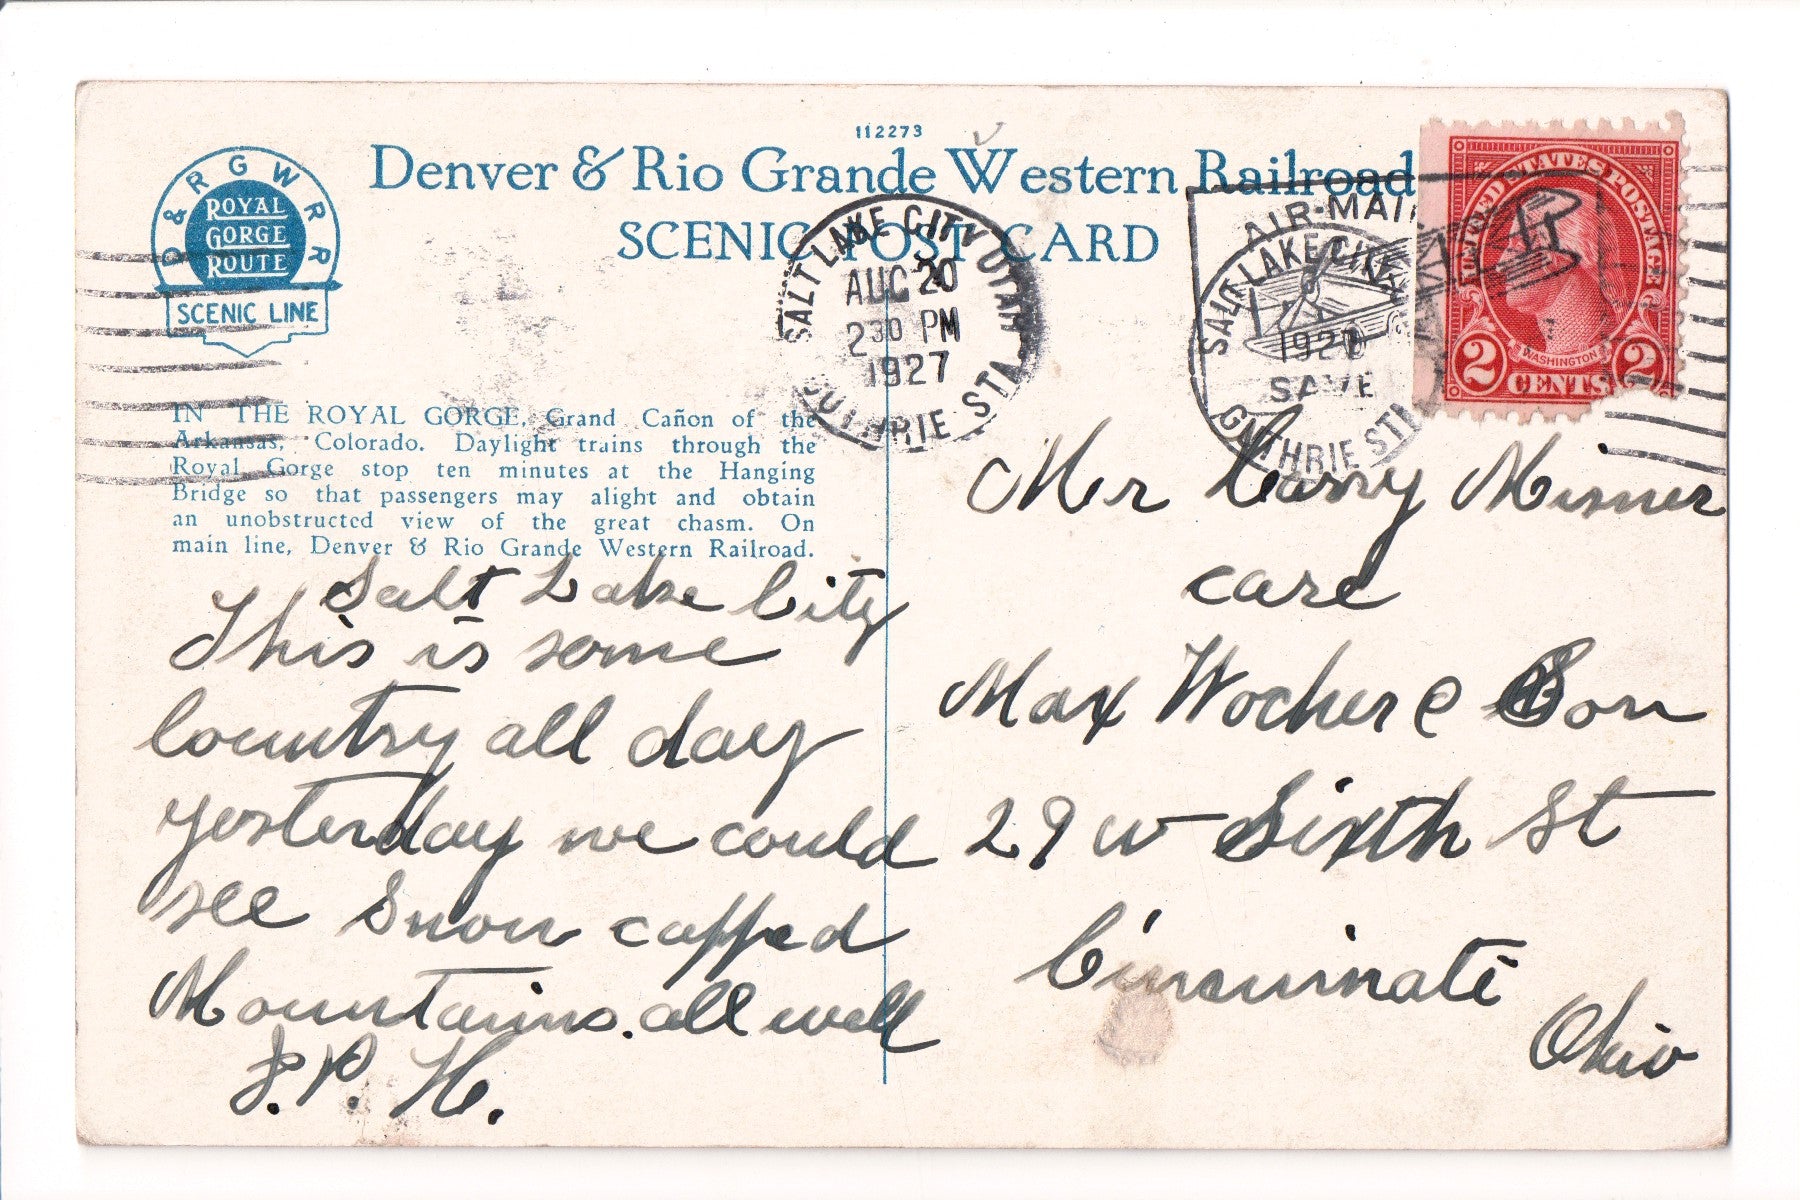 112273
Denver & Rio Grande Western Railroad
SCENIC POST CARD
D & R G W R R
ROYAL
GORGE
ROUTE
SCENIC LINE
SALT LAKE CITY UTAH
AUG 20
2 30 PM
1927
GUTHRIE STA.
AIR-MAIL
SALT LAKE CITY
1927
SAVE
GUTHRIE STA
UNITED STATES POSTAGE
WASHINGTON
2 CENTS 2
IN THE ROYAL GORGE, Grand Cañon of the
Arkansas, Colorado. Daylight trains through the
Royal Gorge stop ten minutes at the Hanging
Bridge so that passengers may alight and obtain
an unobstructed view of the great chasm. On
main line, Denver & Rio Grande Western Railroad.
Salt Lake City
This is some
Country all day
yesterday we could
see Snow capped
Mountains. all well
J. P. H.
Mr Misner
care
Max Wocher & Son
29 W Sixth St
Cincinnati
Ohio